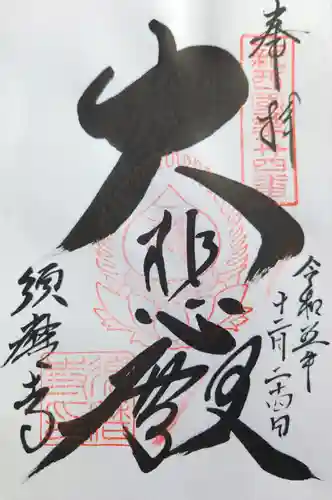 奉拝
大悲殿
須磨寺
令和五年
十二月二十四日